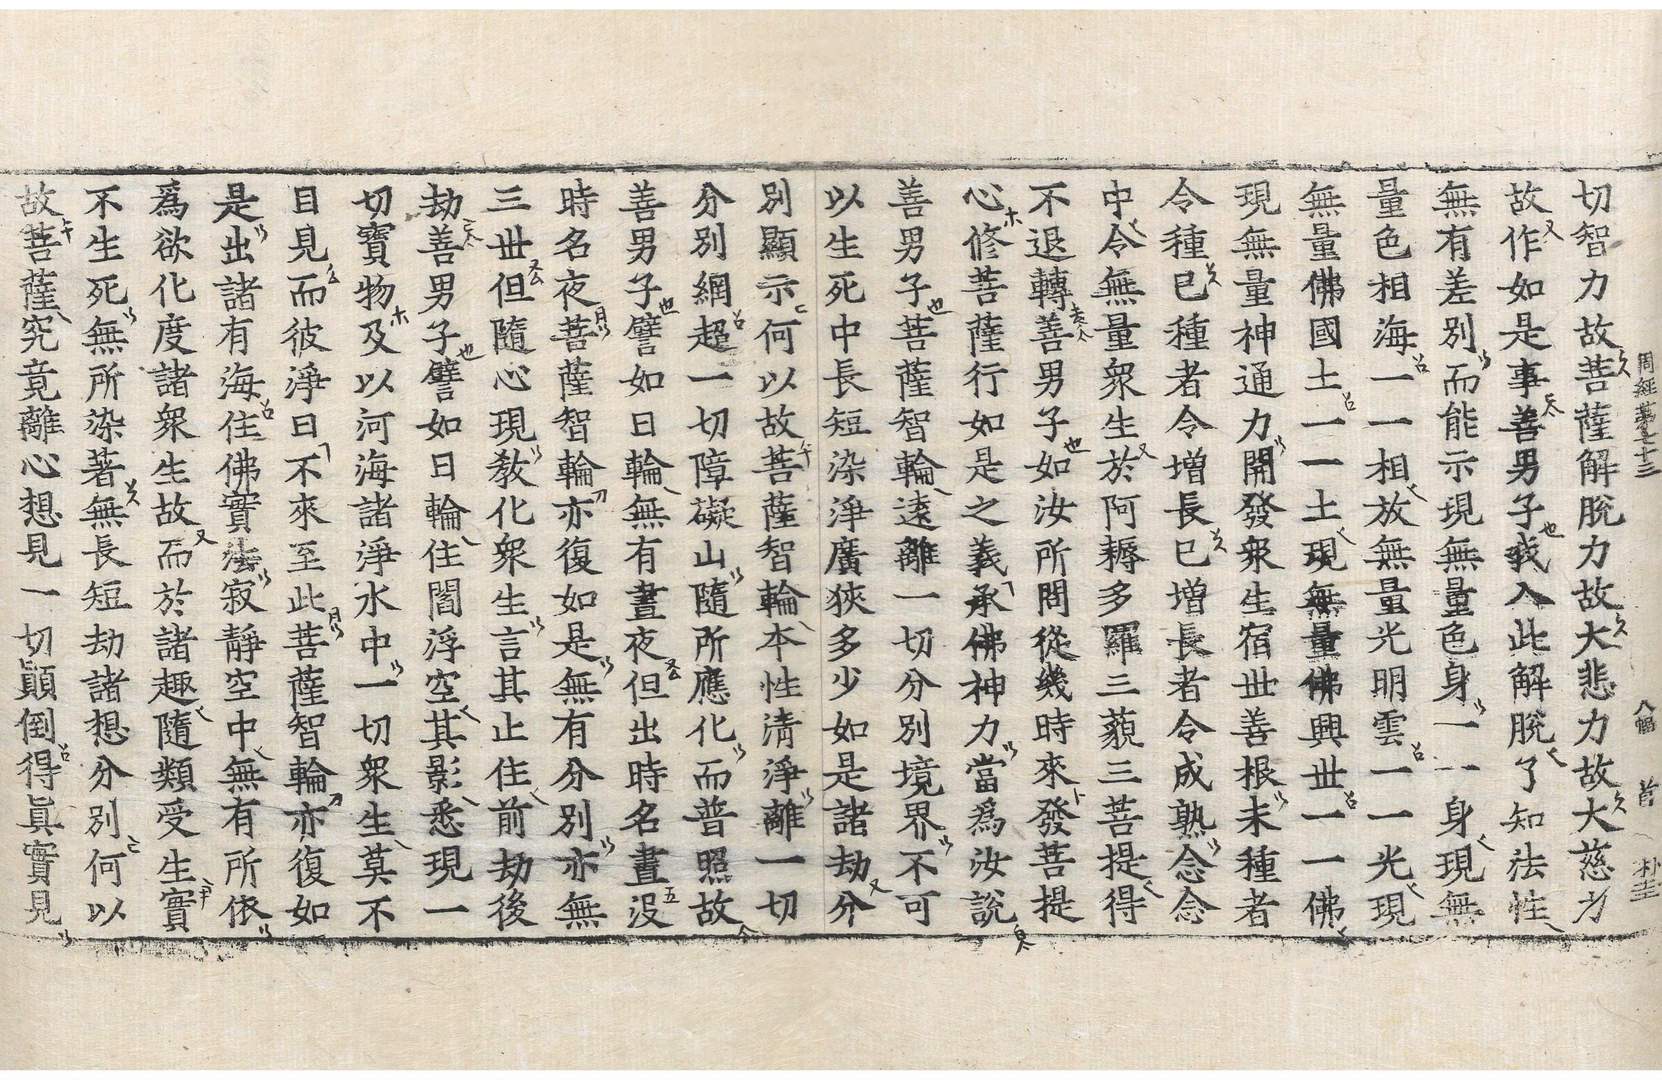 周經第七十三 八幅 首 朴圭
切智力故菩薩解脫力故大悲力故大慈力
故作如是事善男子我入此解脫了知法性
無有差別而能示現無量色身一一身現無
量色相海一一相放無量光明雲一一光現
無量佛國土一一土現無量佛興世一一佛
現無量神通力開發衆生宿世善根未種者
令種已種者令增長已增長者令成熟念念
中令無量衆生於阿耨多羅三藐三菩提得
不退轉善男子如汝所問從幾時來發菩提
心修菩薩行如是之義承佛神力當爲汝說
善男子菩薩智輪遠離一切分別境界不可
以生死中長短染淨廣狹多少如是諸劫分
別顯示何以故菩薩智輪本性淸淨離一切
分別網超一切障礙山隨所應化而普照故
善男子譬如日輪無有晝夜但出時名晝沒
時名夜菩薩智輪亦復如是無有分別亦無
三世但隨心現敎化衆生言其止住前劫後
劫善男子譬如日輪住閻浮空其影悉現一
切寶物及以河海諸淨水中一切衆生莫不
目見而彼淨日不來至此菩薩智輪亦復如
是出諸有海住佛實法寂靜空中無有所依
爲欲化度諸衆生故而於諸趣隨類受生實
不生死無所染著無長短劫諸想分別何以
故菩薩究竟離心想見一切顚倒得眞實見